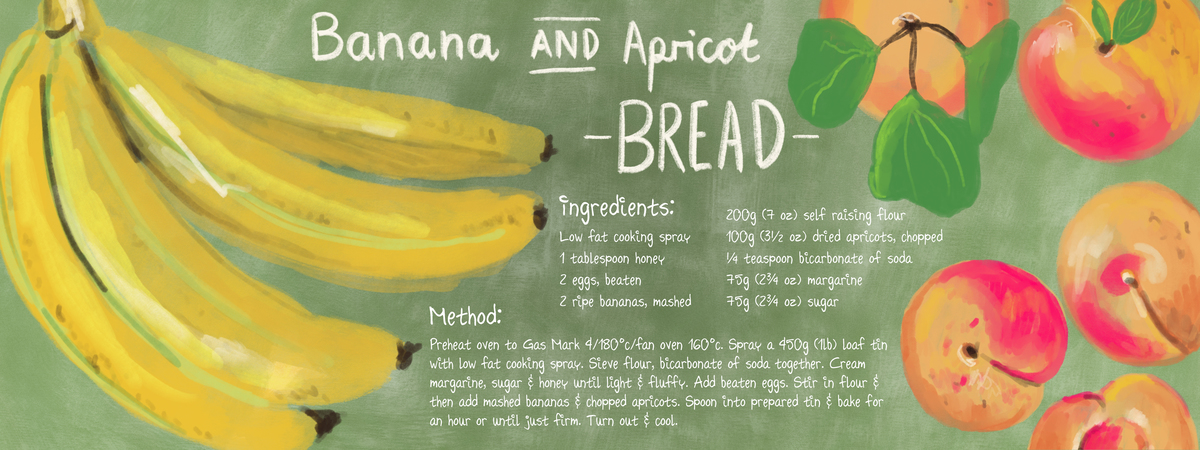 Banana AND Apricot
-BREAD-
ingredients:
Low fat cooking spray
1 tablespoon honey
2 eggs, beaten
2 ripe bananas, mashed
200g (7 oz) self raising flour
100g (3½ oz) dried apricots, chopped
¼ teaspoon bicarbonate of soda
75g (2¾ oz) margarine
75g (2¾ oz) sugar
Method:
Preheat oven to Gas Mark 4/180°c/fan oven 160°c. Spray a 450g (1lb) loaf tin
with low fat cooking spray. Sieve flour, bicarbonate of soda together. Cream
margarine, sugar & honey until light & fluffy. Add beaten eggs. Stir in flour &
then add mashed bananas & chopped apricots. Spoon into prepared tin & bake for
an hour or until just firm. Turn out & cool.